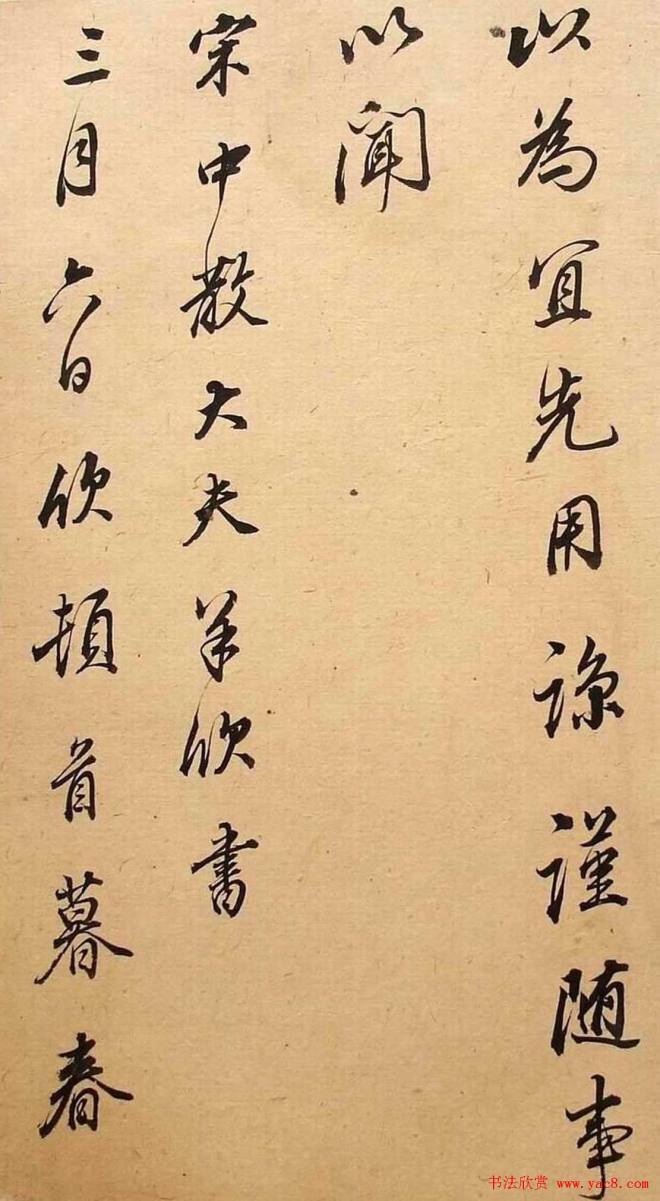 以為宜先用諒謹随事
以聞
宋中散大夫羊欣書
三月六日欣頓首暮春
书法欣赏 www.yac8.com